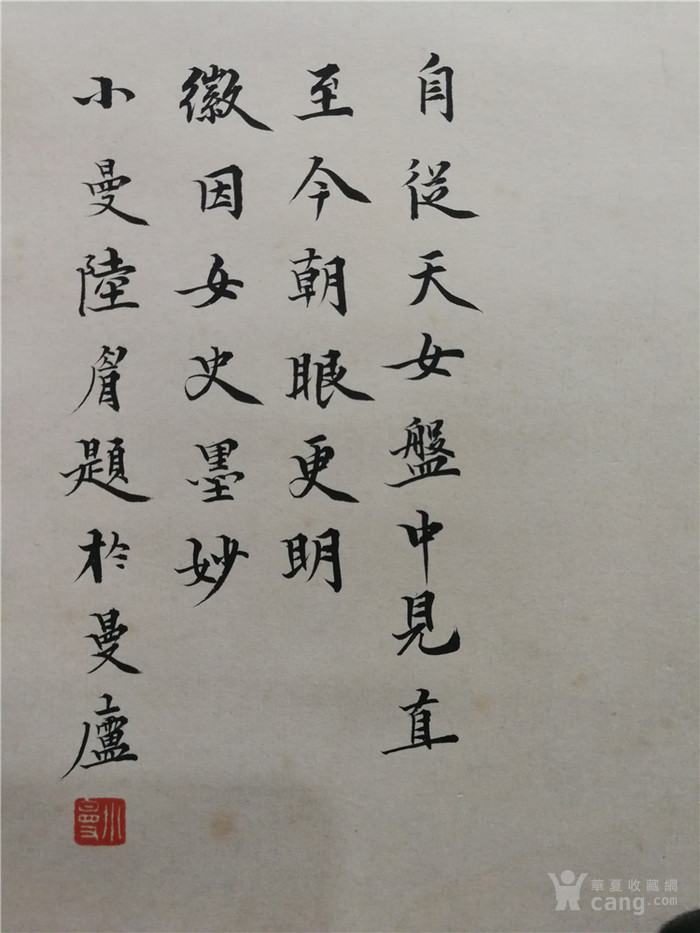 自從天女盤中見直
至今朝眼更明
徽因女史墨妙
小曼陸眉題於曼廬
小曼
華夏收藏網
cang.com